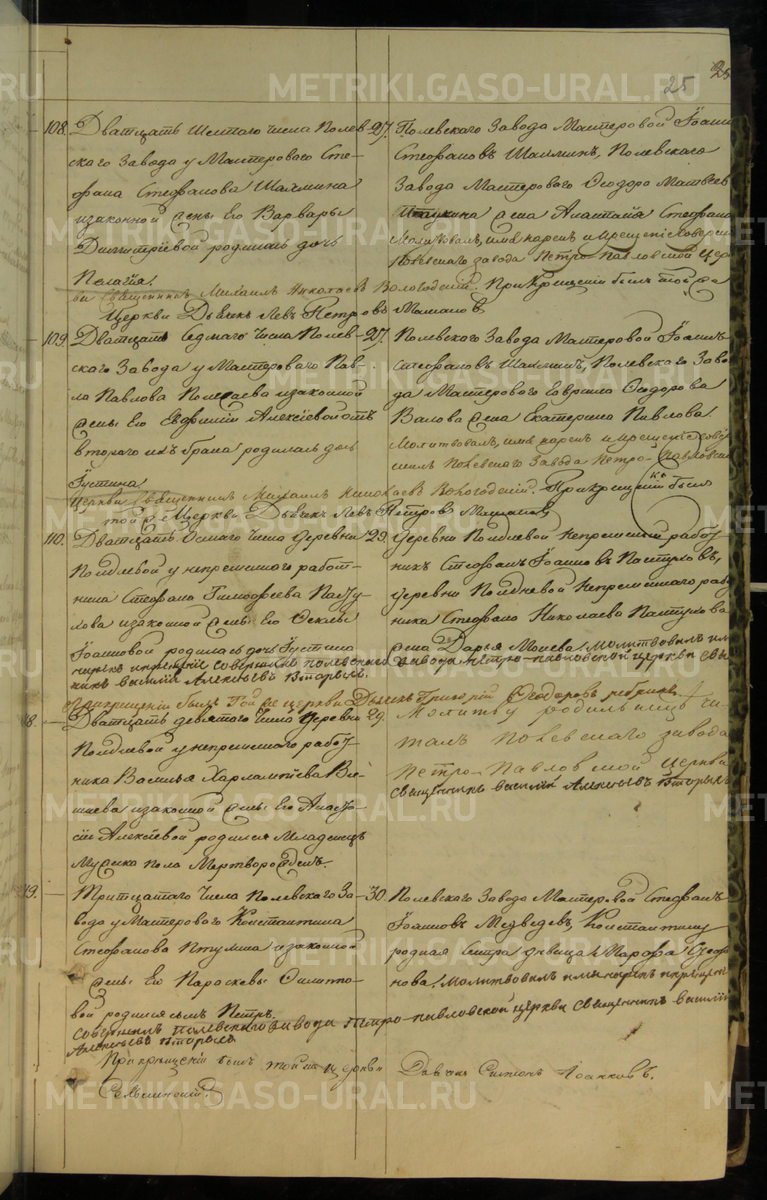 25
108. Дватцать шестаго числа Полев-
скаго завода у Мастероваго Сте-
фана Стефанова Шахмина
изаконной жены Его Варвары
Димитріевой родилась дочь
Пелагія.
27. Полевскаго Завода Мастеровой Іоаннъ
Стефановъ Шахминъ, Полевскаго
Завода Мастероваго Ѳеодора Матвеева
жена Анастасія Стефанова
Молитвовалъ, имя нарекъ и крещеніе соверши
Полевскаго завода Петро-Павловской Цер
кви Священникъ Михаилъ Николаевъ Вологодскій. При Крещеніи былъ той же
Церкви Дьячекъ Левъ Петровъ
109. Дватцать Седмаго числа Полев-
скаго Завода у Мастероваго Пав-
ла Павлова изаконной
жены Его Евфиміи Алексіевой отъ
втораго ихъ брака родилась дочь
Іустина
27. Полевскаго Завода Мастеровой Іоаннъ
Стефановъ Шахминъ, Полевскаго Заво
да Мастероваго Гаврила Ѳеодорова
Валова жена Екатерина Павлова.
Молитвовалъ, имя нарекъ и крещеніе совер
шилъ Полевскаго Завода Петро-Павловской
Церкви Священникъ Михаилъ Николаевъ Вологодскій. При крещеніи былъ
той же Церкви Дьячекъ Левъ Петровъ
110. Дватцать Осмаго Числа Деревни
Полдневой у непременнаго работ-
ника Стефана Тимофеева Пасту-
хова изаконной жены Его Ѳеклы
Іоанновой родилась дочь Іустина
29. Деревни Полдневой Непременной рабо
никъ Стефанъ Іоанновъ Пастуховъ,
Деревни Полдневой Непременнаго рабо
ника Стефана Николаева Пастухова
жена Дарья Моисеева. Молитвовалъ им
нарекъ икрещеніе совершилъ полевскаго завода петро-павловской церкви свя
никъ василій Алексіевъ Вторыхъ.
Прикрещеніи былъ Той же церкви Дьячекъ Григорій Ѳеодоровъ
18. Дватцать девятаго Числа Деревни
Полдневой у непременнаго рабо
ника Василья Харлампіева
изаконной жены Его Анаста
сіи Алексіевой родился Младенецъ
Мужеска пола Мертворожденъ.
29. Молитву родильницѣ чи
талъ Полевскаго завода
Петро-Павловской Церкви
священникъ василій Алексіевъ Вторыхъ
19. Тритцатаго Числа Полевскаго За-
вода у Мастероваго Константина
Стефанова изаконной
жены Его Параскевы Филипо-
вой родился сынъ Петръ.
30. Полевскаго Завода Мастеровой Стефанъ
Іоанновъ Медведевъ, Константину
родная Сестра девица Марѳа Стефа
нова. Молитвовалъ имя нарекъ икрещеніе
совершилъ полевскаго завода петро-павловской церкви священникъ василій
Алексіевъ Вторыхъ
При крещеніи былъ той же церкви Дьячекъ Симеонъ
METRIKI.GASO-URAL.RU